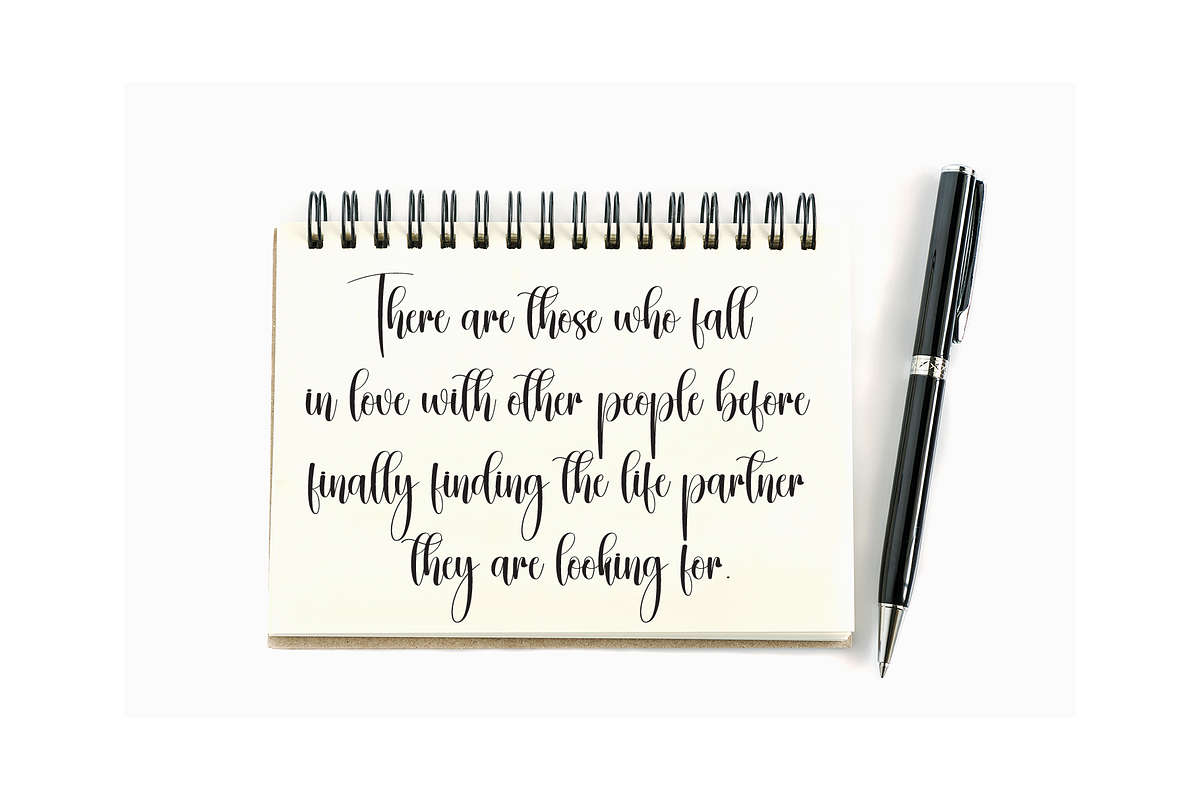 There are those who fall
in love with other people before
finally finding the life partner
they are looking for.